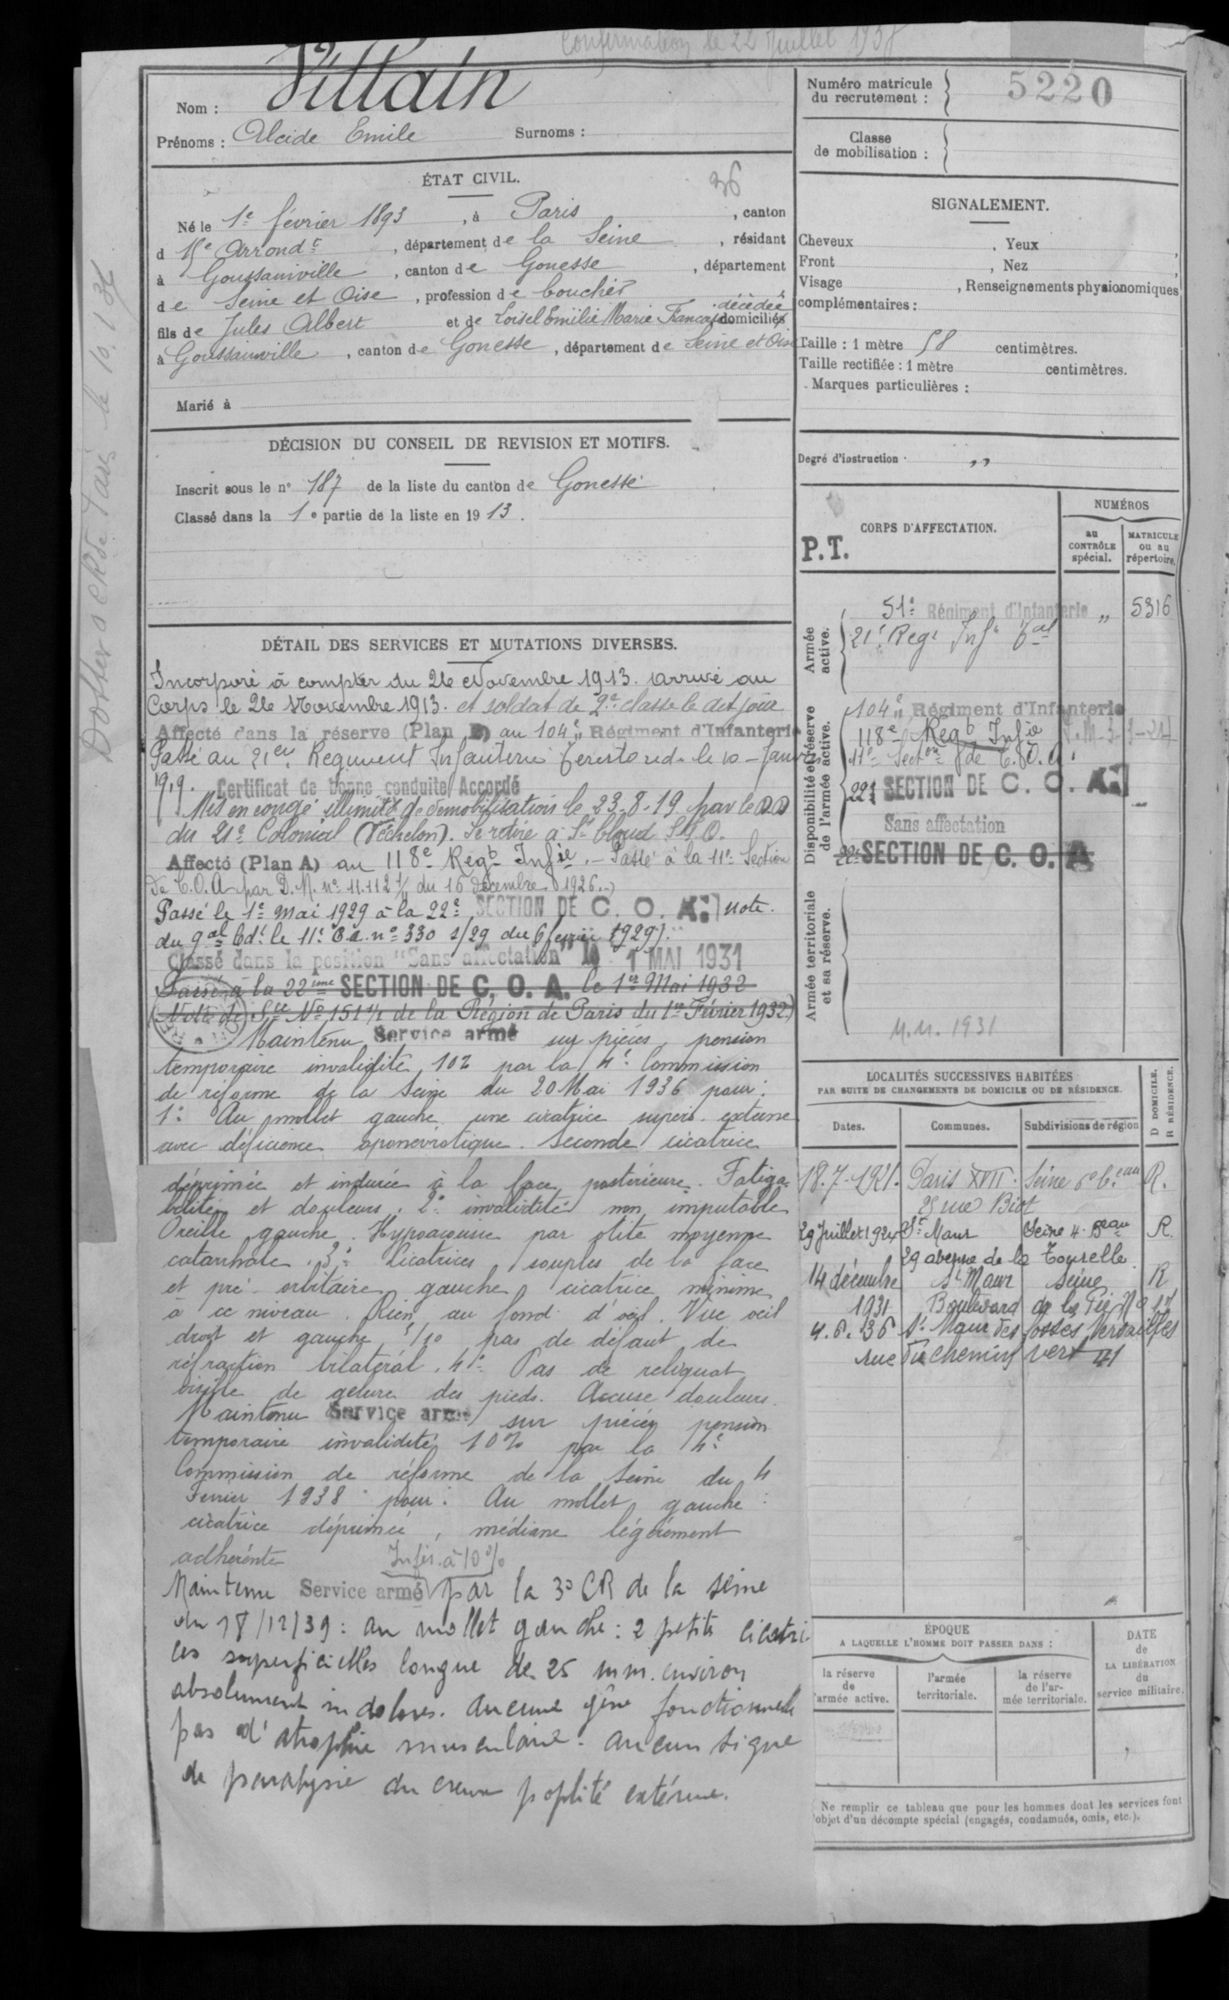 Confirmation le 22 Juillet 1938
Nom : Villain
Prénoms : Alcide Emile Surnoms :
ÉTAT CIVIL.
36
Né le 1e février 1893, à Paris, canton
d 15e Arrondt, département de la Seine, résidant
à Goussainville, canton de Gonesse, département
de Seine et Oise, profession de boucher
fils de Jules Albert et de Loisel Emilie Marie décédée domiciliés
à Goussainville, canton de Gonesse, département de Seine et Oise
Marié à
DÉCISION DU CONSEIL DE REVISION ET MOTIFS.
Inscrit sous le n° 187 de la liste du canton de Gonesse
Classé dans la 1e partie de la liste en 1913.
DÉTAIL DES SERVICES ET MUTATIONS DIVERSES.
Incorporé à compter du 26 Novembre 1913. arrivé au
Corps le 26 Novembre 1913. et soldat de 2e classe le dit jour
Affecté dans la réserve (Plan B) au 104e Régiment d'Infanterie
Passé au 21e Regiment Infanterie le 10
1919. Certificat de bonne conduite Accordé
Mis en congé illimité de démobilisation le 23-8-19 par le DD
du 21e Colonial (échelon). Se retire à St Cloud S.&O.
Affecté (Plan A) au 118e Regt Infie. - Passé à la 11e Section
de C.O.A par D.M. n° 11.112 1/ du 16 décembre 1926.
Passé le 1e mai 1929 à la 22e SECTION DE C. O. A. note.
du gal Cdt le 11e C.A. n° 330 s/29 du 6 fevrier 1929).
Classé dans la position "Sans affectation" le 1 MAI 1931
Passé à la 22ème SECTION DE C. O. A. le 1er Mai 1932
(Note de Sce N° 151 1/1 de la Région de Paris du 1er Février 1932)
Maintenu Service armé sur pièces, pension
temporaire invalidité 10% par la 4e Commission
de réforme de la Seine du 20 Mai 1936 pour :
1° Au mollet gauche une cicatrice supero externe
avec déficience aponevrotique. Seconde cicatrice
déprimée et indurée à la face postérieure. Fatiga-
bilité et douleurs. 2° invalidité non imputable
Oreille gauche. Hypoacousie par otite moyenne
catarrhale. 3° Cicatrices souples de la face
et pré orbitaire gauche cicatrice minime
à ce niveau. Rien au fond d'œil. Vue œil
droit et gauche 5/10 pas de défaut de
réfraction bilatéral. 4° Pas de reliquat
visible de gelure des pieds. Accuse douleurs.
Maintenu Service armé sur pièces pension
temporaire invalidité 10% par la 4e
Commission de réforme de la Seine du 4
Fevrier 1938 pour : Au mollet gauche :
cicatrice déprimée, médiane légèrement
adhérente Infér. à 10%
Maintenu Service armé par la 3e CR de la Seine
du 18/12/39 : au mollet gauche : 2 petites cicatri-
ces superficielles longue de 25 mm. environ
absolument indolores. Aucune gêne fonctionnelle
pas d'atrophie musculaire. aucun signe
de paralysie du creux poplité externe.
Numéro matricule du recrutement : 5220
Classe de mobilisation :
SIGNALEMENT.
Cheveux , Yeux ,
Front , Nez ,
Visage , Renseignements physionomiques
complémentaires :
Taille : 1 mètre 58 centimètres.
Taille rectifiée : 1 mètre centimètres.
Marques particulières :
Degré d'instruction : "
P.T.
CORPS D'AFFECTATION.
NUMÉROS
au CONTRÔLE spécial.
MATRICULE ou au répertoire.
Armée active.
51e Régiment d'Infanterie " 5316
21e Regt Infie
Disponibilité et réserve de l'armée active.
104e Régiment d'Infanterie
118e Regt Infie
11e Secton de C.O.A.
22e SECTION DE C. O. A.
Sans affectation
22e SECTION DE C. O. A
Armée territoriale et sa réserve.
1931
LOCALITÉS SUCCESSIVES HABITÉES
PAR SUITE DE CHANGEMENTS DE DOMICILE OU DE RÉSIDENCE.
D DOMICILE. R RÉSIDENCE.
Dates. Communes. Subdivisions de région
18.7.1921. Paris XVII. Seine 6e beau R.
rue Biot
29 Juillet 1924 St Maur Seine 4. Beau R.
29 avenue de la Tourelle
14 décembre St Maur Seine R
1931 Boulevard de la Pie N° 17
4.6.36 St Maur des Fossés Versailles
rue du chemin vert 41
ÉPOQUE
A LAQUELLE L'HOMME DOIT PASSER DANS :
la réserve de l'armée active.
l'armée territoriale.
la réserve de l'armée territoriale.
DATE de LA LIBÉRATION du service militaire.
Ne remplir ce tableau que pour les hommes dont les services font
l'objet d'un décompte spécial (engagés, condamnés, omis, etc.).